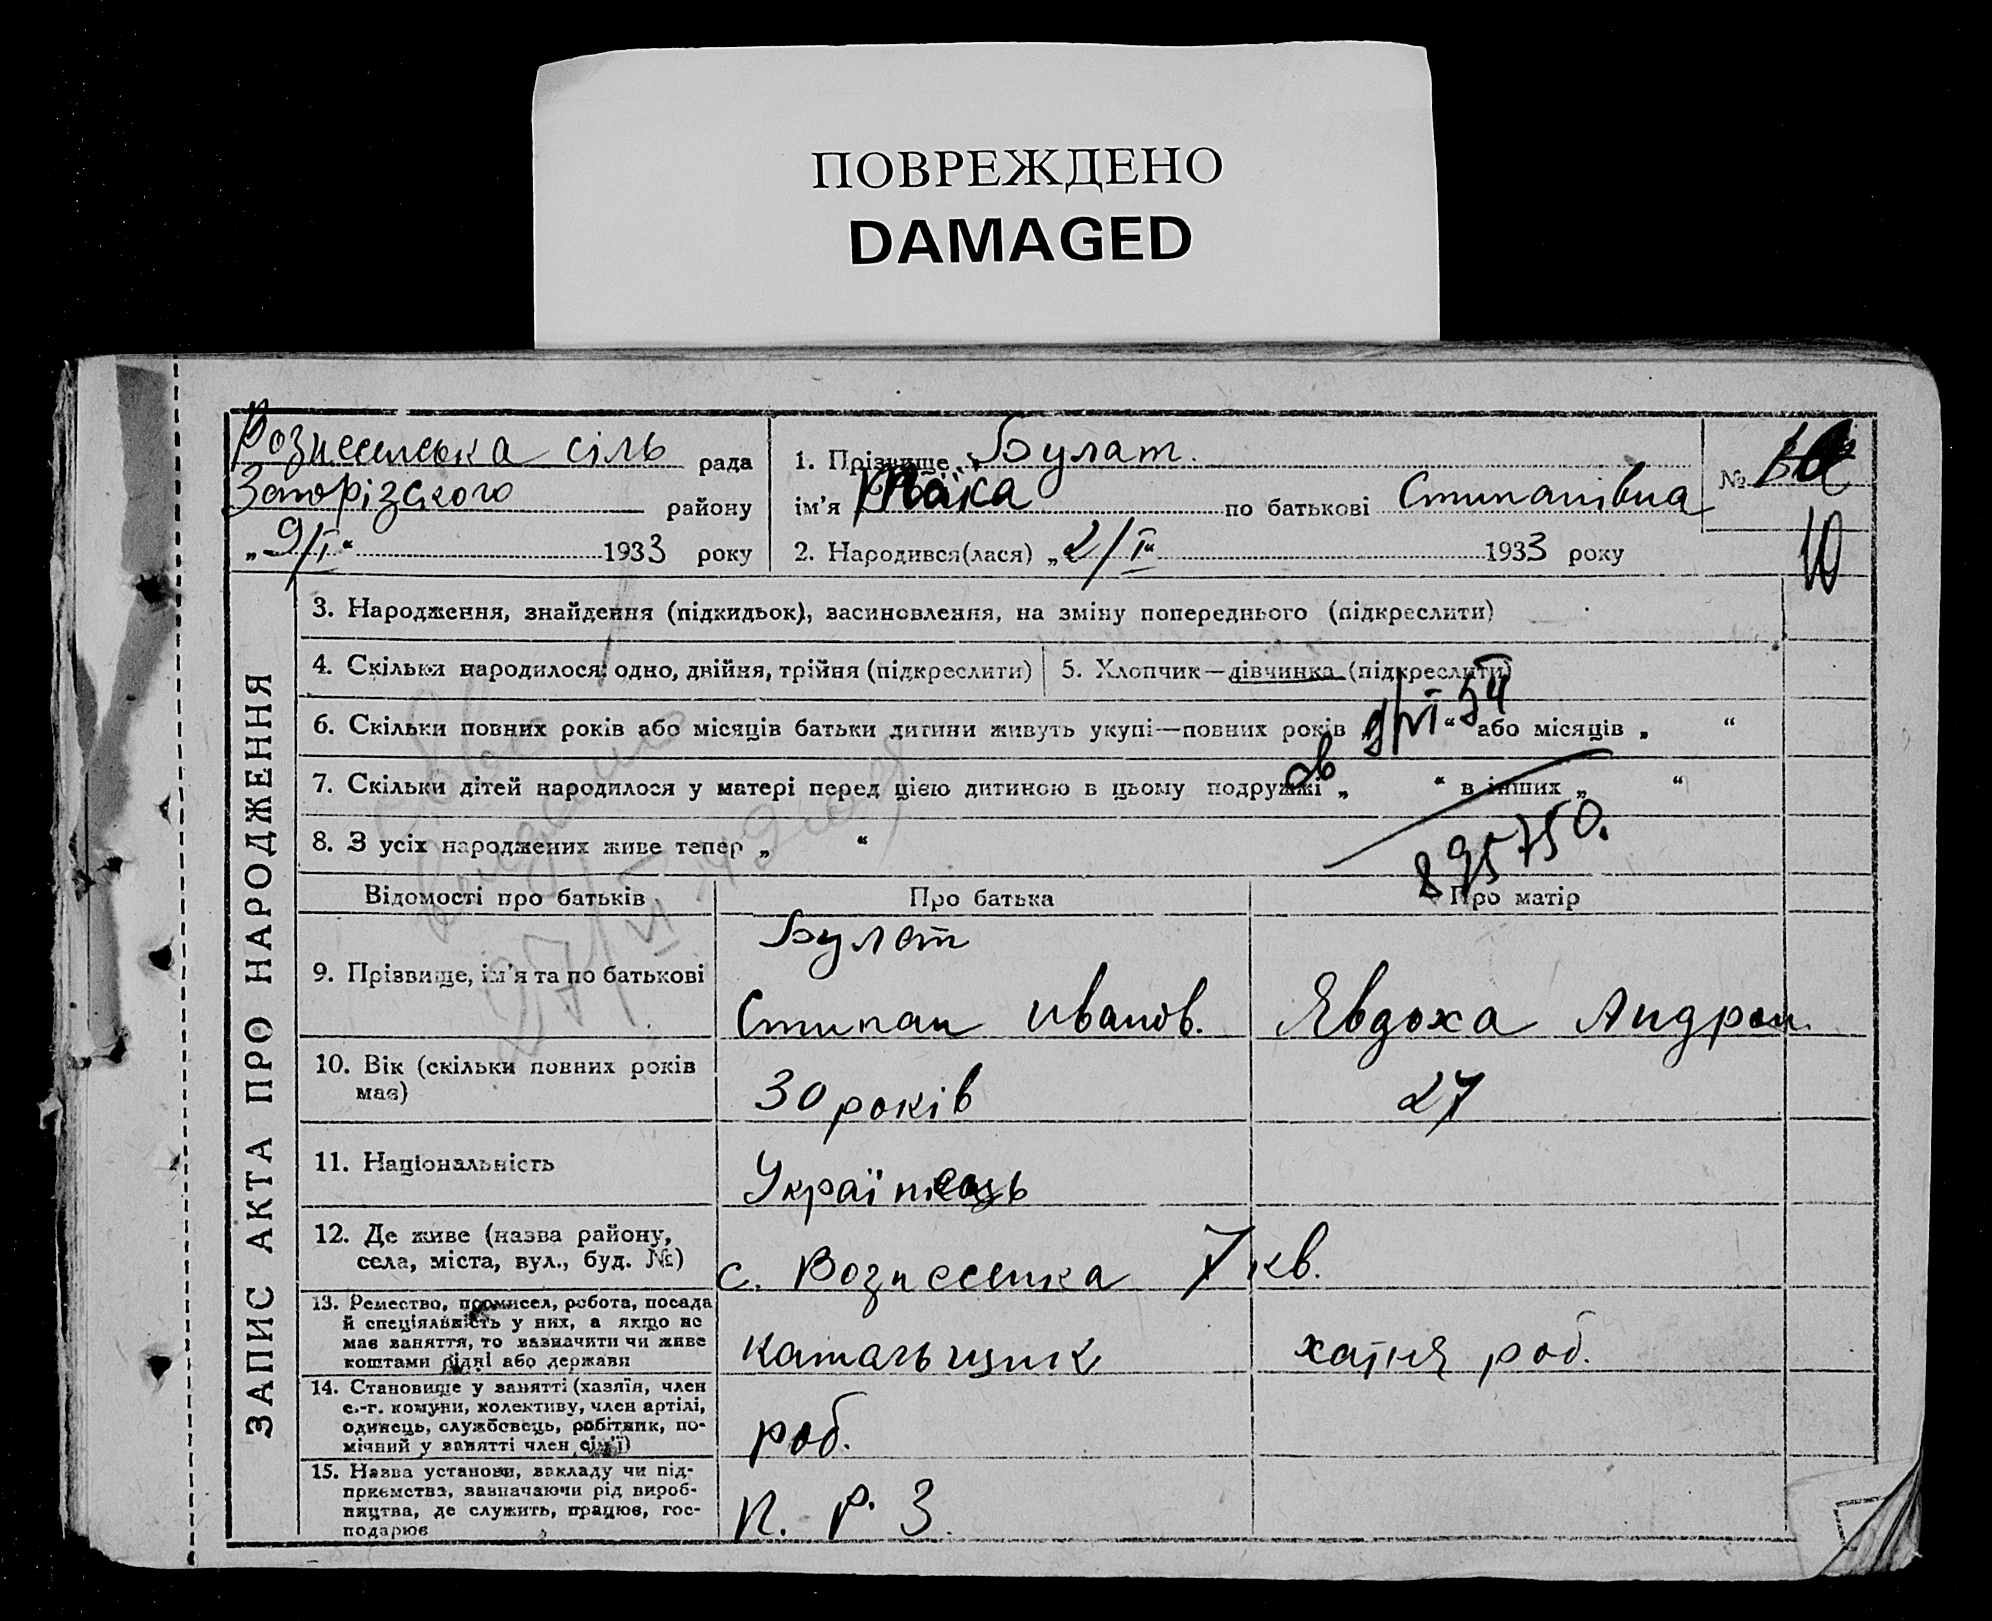 ПОВРЕЖДЕНО
DAMAGED
Вознесенська сіль рада
Запорізского району
„9/I“ 1933 року
1. Прізвище Булат.
ім'я по батькові Стипанівна
2. Народився(лася) „2/I“ 1933 року
№
10
ЗАПИС АКТА ПРО НАРОДЖЕННЯ
3. Народження, знайдення (підкидьок), васиновлення, на зміну попереднього (підкреслити)
4. Скільки народилося: одно, двійня, трійня (підкреслити)
5. Хлопчик—дівчинка (підкреслити)
6. Скільки повних років або місяців батьки дитини живуть укупі—повних років „ “ або місяців „ “
7. Скільки дітей народилося у матері перед цією дитиною в цьому подружжі „ “ в інших „ “
8. З усіх народжених живе тепер „ “
895750.
27/VI
Відомості про батьків
Про батька
Про матір
9. Прізвище, ім'я та по батькові
Булат
Стипан Иванов.
Явдоха Андрон.
10. Вік (скільки повних років має)
30 років
27
11. Національність
Українець
12. Де живе (назва району, села, міста, вул., буд. №)
с. Вознесенка 7 кв.
13. Ремество, промисел, робота, посада й спеціяльність у них, а якщо не має ваняття, то вазначити чи живе коштами рідні або держави
катальщик
хатня роб.
14. Становище у ванятті (хазяїн, член с.-г. комуни, колективу, член артілі, одинець, службовець, робітник, помічний у ванятті член сім'ї)
роб.
15. Назва установи, вакладу чи підприємства, вазначаючи рід виробництва, де служить, працює, господарює
П. Р. З.